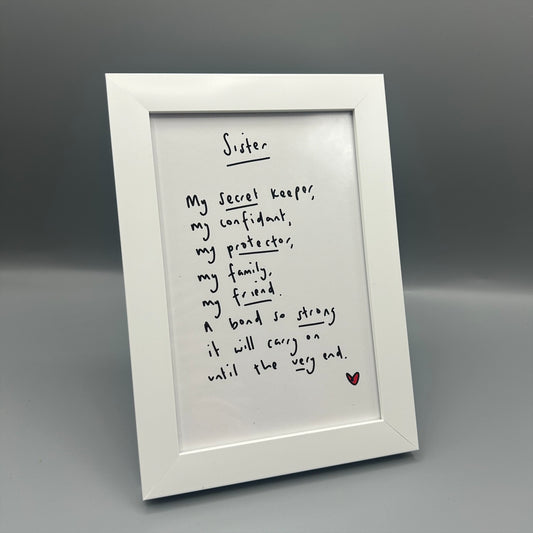 Sister
My secret keeper,
my confidant,
my protector,
my family,
my friend.
A bond so strong
it will carry on
until the very end.